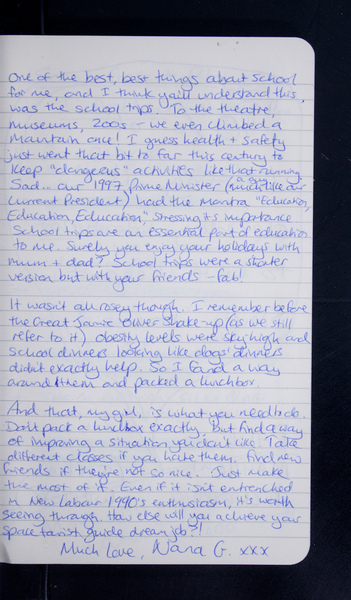 One of the best, best things about school
for me, and I think you'll understand this,
was the school trips. To the theatre,
museums, zoos - we even climbed a
mountain once! I guess health + safety
just went that bit to far this century to
keep "dangerous" activities like that running.
Sad... our 1997 Prime Minister (a guy much like our
current President) had the mantra "Education,
Education, Education" stressing its importance
School trips are an essential part of education
to me. Surely you enjoy your holidays with
mum + dad? School trips were a shorter
version but with your friends - fab!
It wasn't all rosey though. I remember before
the Great Jamie Oliver Shake-up (as we still
refer to it) obesity levels were sky high and
school dinners looking like dogs' dinners
didn't exactly help. So I found a way
around them and packed a lunchbox.
And that, my girl, is what you need to do.
Don't pack a lunchbox exactly, but find a way
of improving a situation you don't like. Take
different classes if you hate them. Find new
friends if they're not so nice. Just make
the most of it. Even if it isn't entrenched
in New Labour 1990's enthusiasm, it's worth
seeing through. How else will you achieve your
space tourist guide dream job?!
Much Love, Nana G. xxx